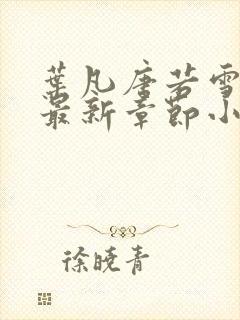 葉凡唐若雪
最新章節小
徐曉青